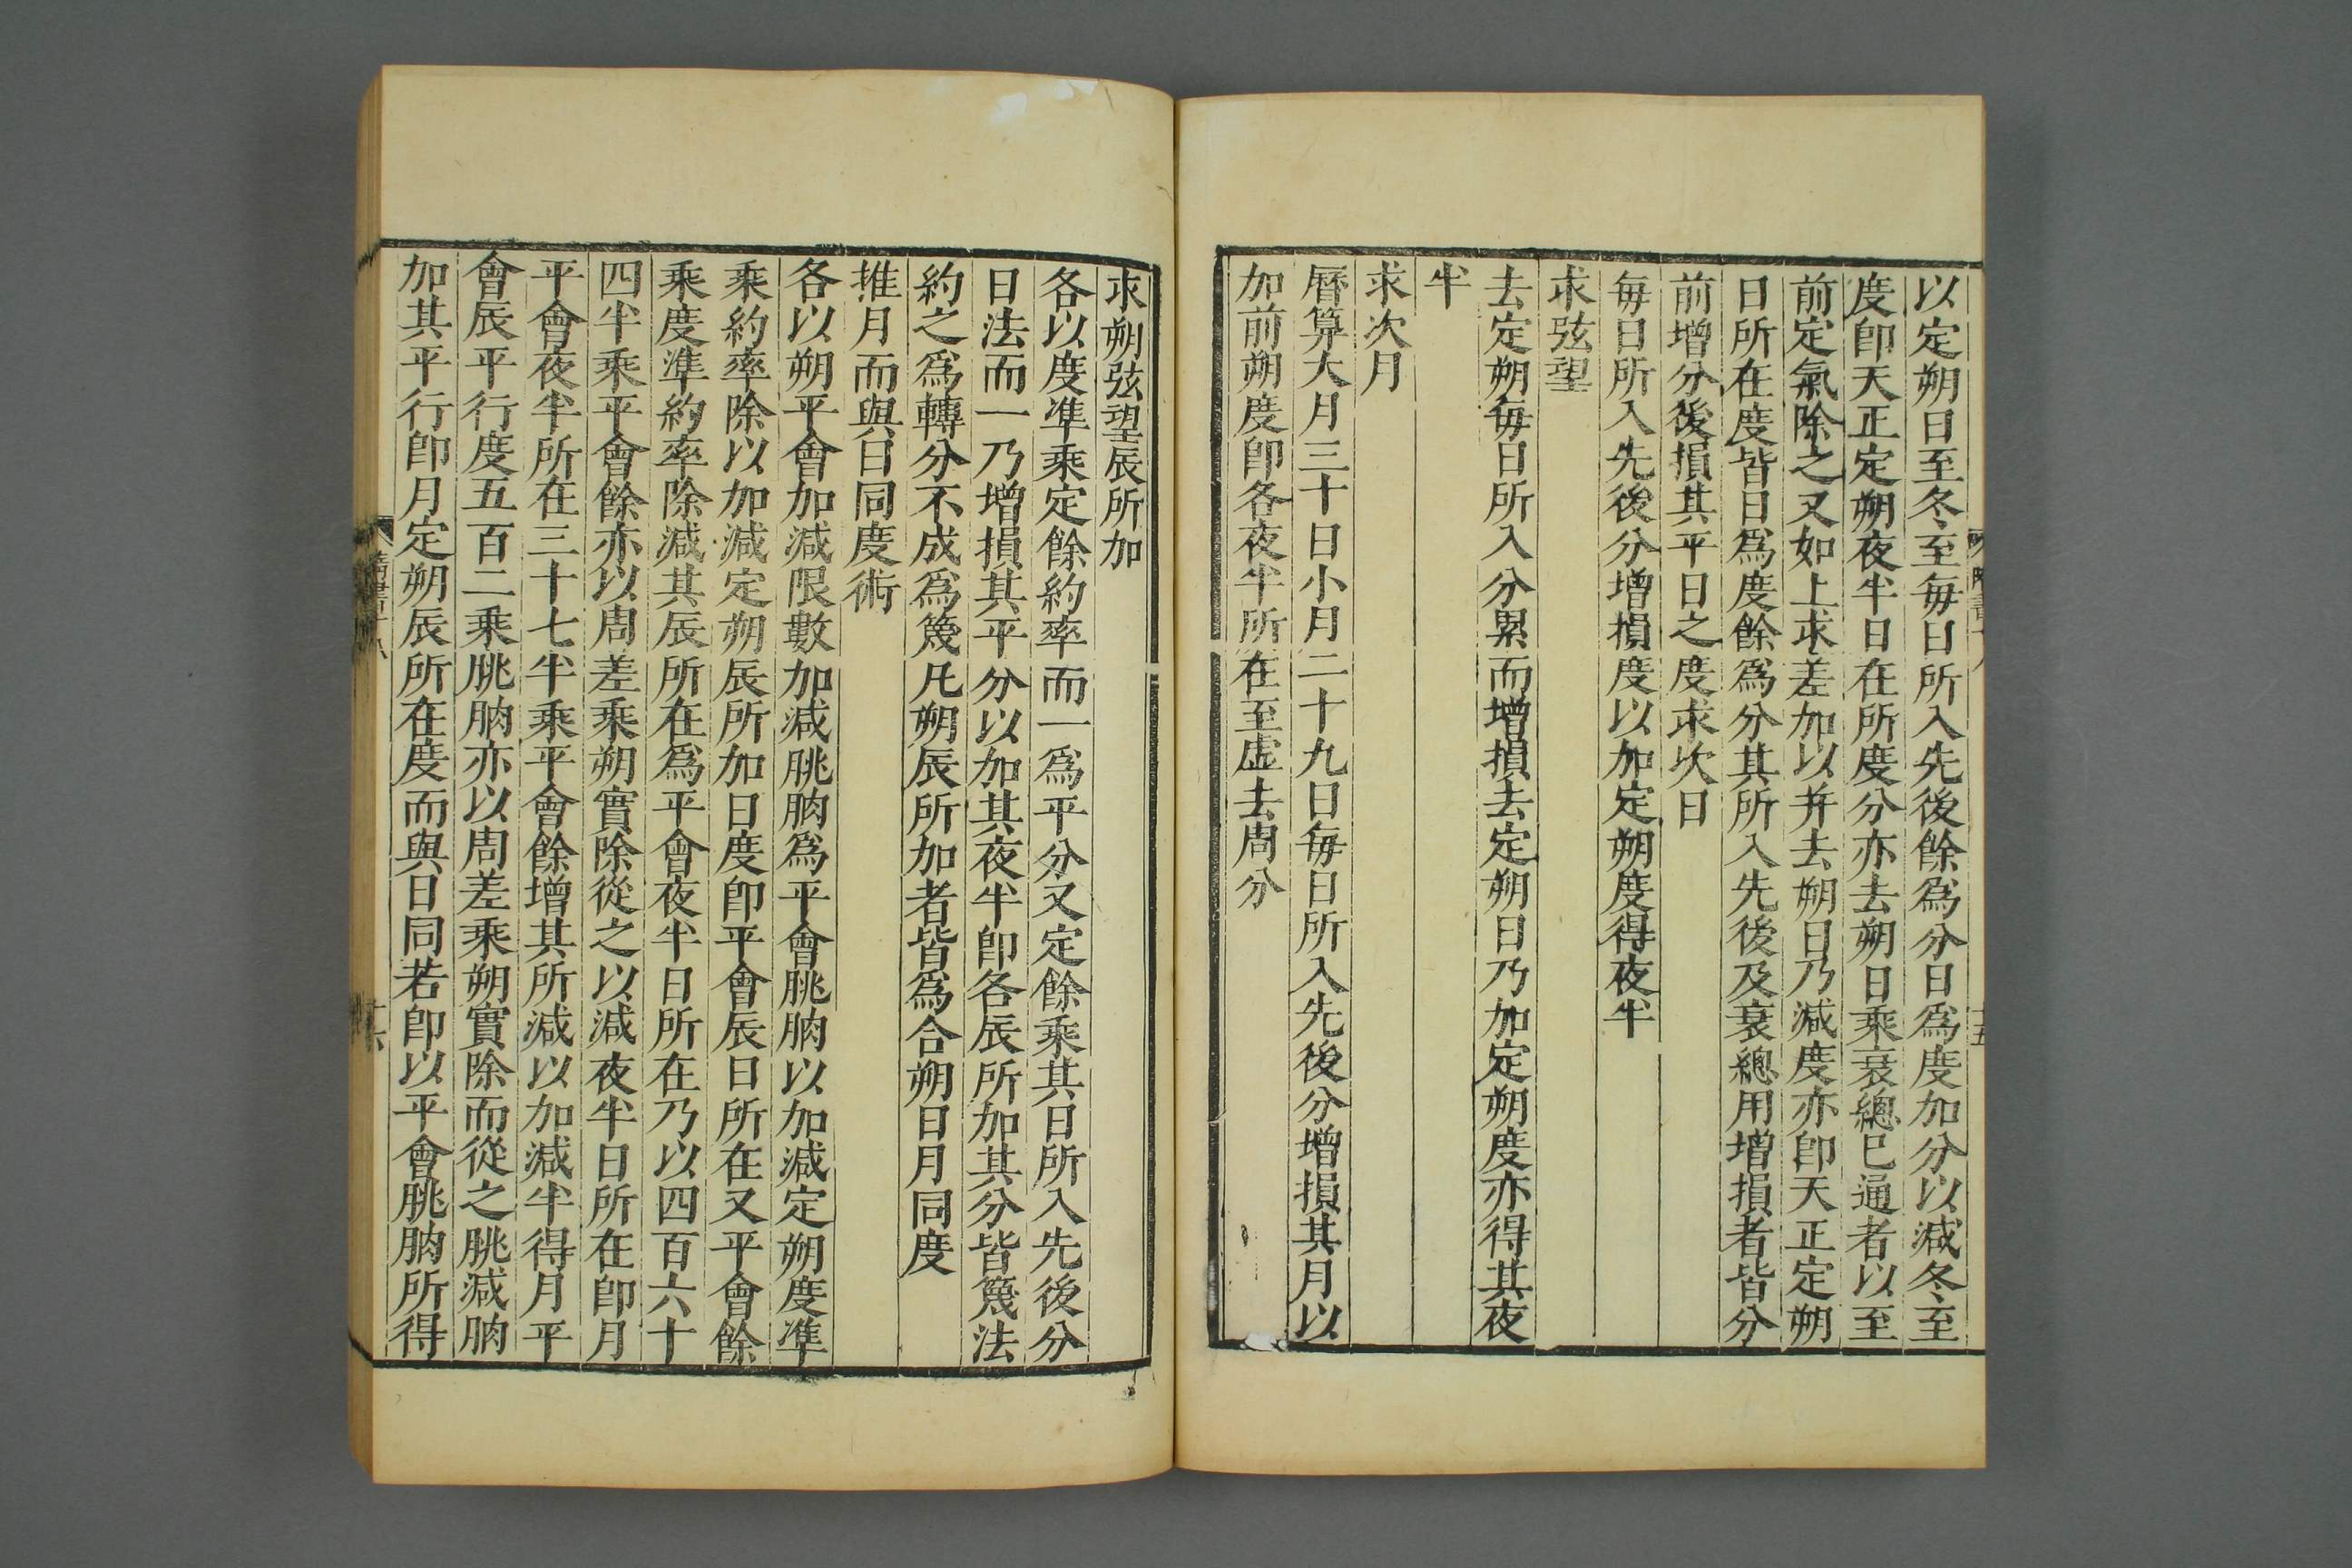 以定朔日至冬至每日所入先後餘爲分日爲度加分以減冬至
度卽天正定朔夜半日在所度分亦去朔日乘衰總巳通者以至
前定氣除之又如上求差加以幷去朔日乃減度亦卽天正定朔
日所在度皆日爲度餘爲分其所入先後及衰總用增損者皆分
前增分後損其平日之度求次日
每日所入先後分增損度以加定朔度得夜半
求弦望
去定朔每日所入分累而增損去定朔日乃加定朔度亦得其夜
半
求次月
曆算大月三十日小月二十九日每日所入先後分增損其月以
加前朔度卽各夜半所在至虛去周分
求朔弦望辰所加
各以度準乘定餘約率而一爲平分又定餘乘其日所入先後分
日法而一乃增損其平分以加其夜半卽各辰所加其分皆篾法
約之爲轉分不成爲篾凡朔辰所加者皆爲合朔日月同度
推月而與日同度術
各以朔平會加減限數加減朓朒爲平會朓朒以加減定朔度準
乘約率除以加減定朔辰所加日度卽平會辰日所在又平會餘
乘度準約率除減其辰所在爲平會夜半日所在乃以四百六十
四半乘平會餘亦以周差乘朔實除從之以減夜半日所在卽月
平會夜半所在三十七半乘平會餘增其所減以加減半得月平
會辰平行度五百二乘朓朒亦以周差乘朔實除而從之朓減朒
加其平行卽月定朔辰所在度而與日同若卽以平會朓朒所得